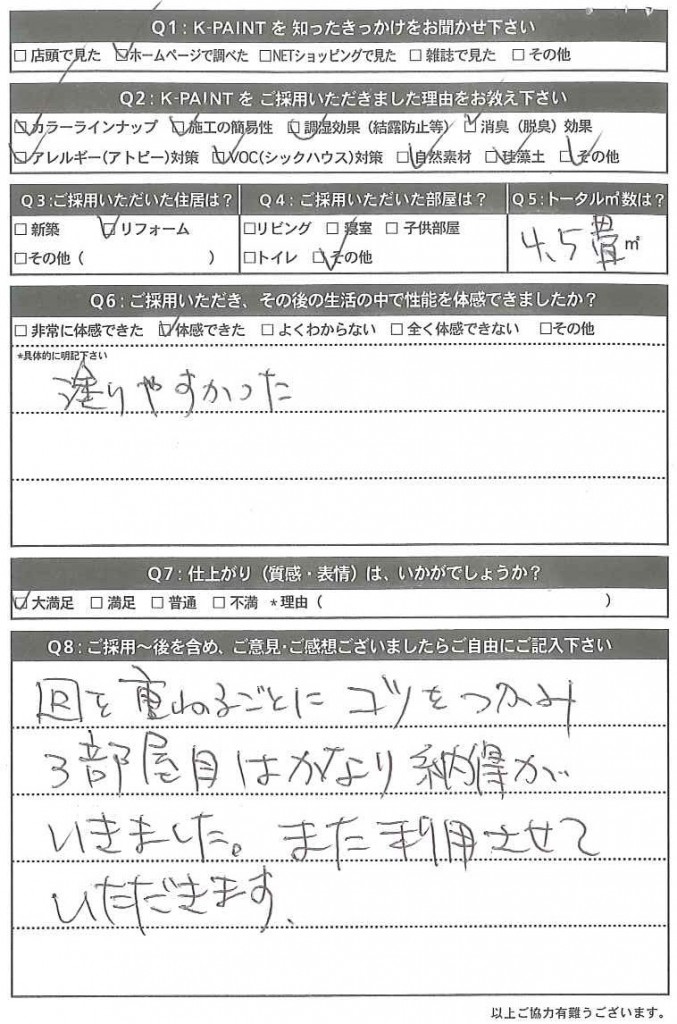 Q1：K-PAINTを 知ったきっかけをお聞かせ下さい
□店頭で見た ☑ホームページで調べた □NETショッピングで見た □雑誌で見た □その他
Q2：K-PAINTを ご採用いただきました理由をお教え下さい
☑カラーラインナップ ☑施工の簡易性 ☑調湿効果（結露防止等） ☑消臭（脱臭）効果
☑アレルギー(アトピー)対策 ☑VOC(シックハウス)対策 ☑自然素材 ☑珪藻土 ☑その他
Q3：ご採用いただいた住居は？ Q4：ご採用いただいた部屋は？ Q5：トータル㎡数は？
□新築 ☑リフォーム □リビング □寝室 □子供部屋 4.5畳㎡
□その他（ ） □トイレ ☑その他
Q6：ご採用いただき、その後の生活の中で性能を体感できましたか？
□非常に体感できた ☑体感できた □よくわからない □全く体感できない □その他
*具体的に明記下さい
塗りやすかった
Q7：仕上がり（質感・表情）は、いかがでしょうか？
☑大満足 □満足 □普通 □不満 *理由（ ）
Q8：ご採用～後を含め、ご意見・ご感想ございましたらご自由にご記入下さい
回を重ねるごとに コツをつかみ
3部屋目はかなり納得が
いきました。また利用させて
いただきます。
以上ご協力有難うございます。